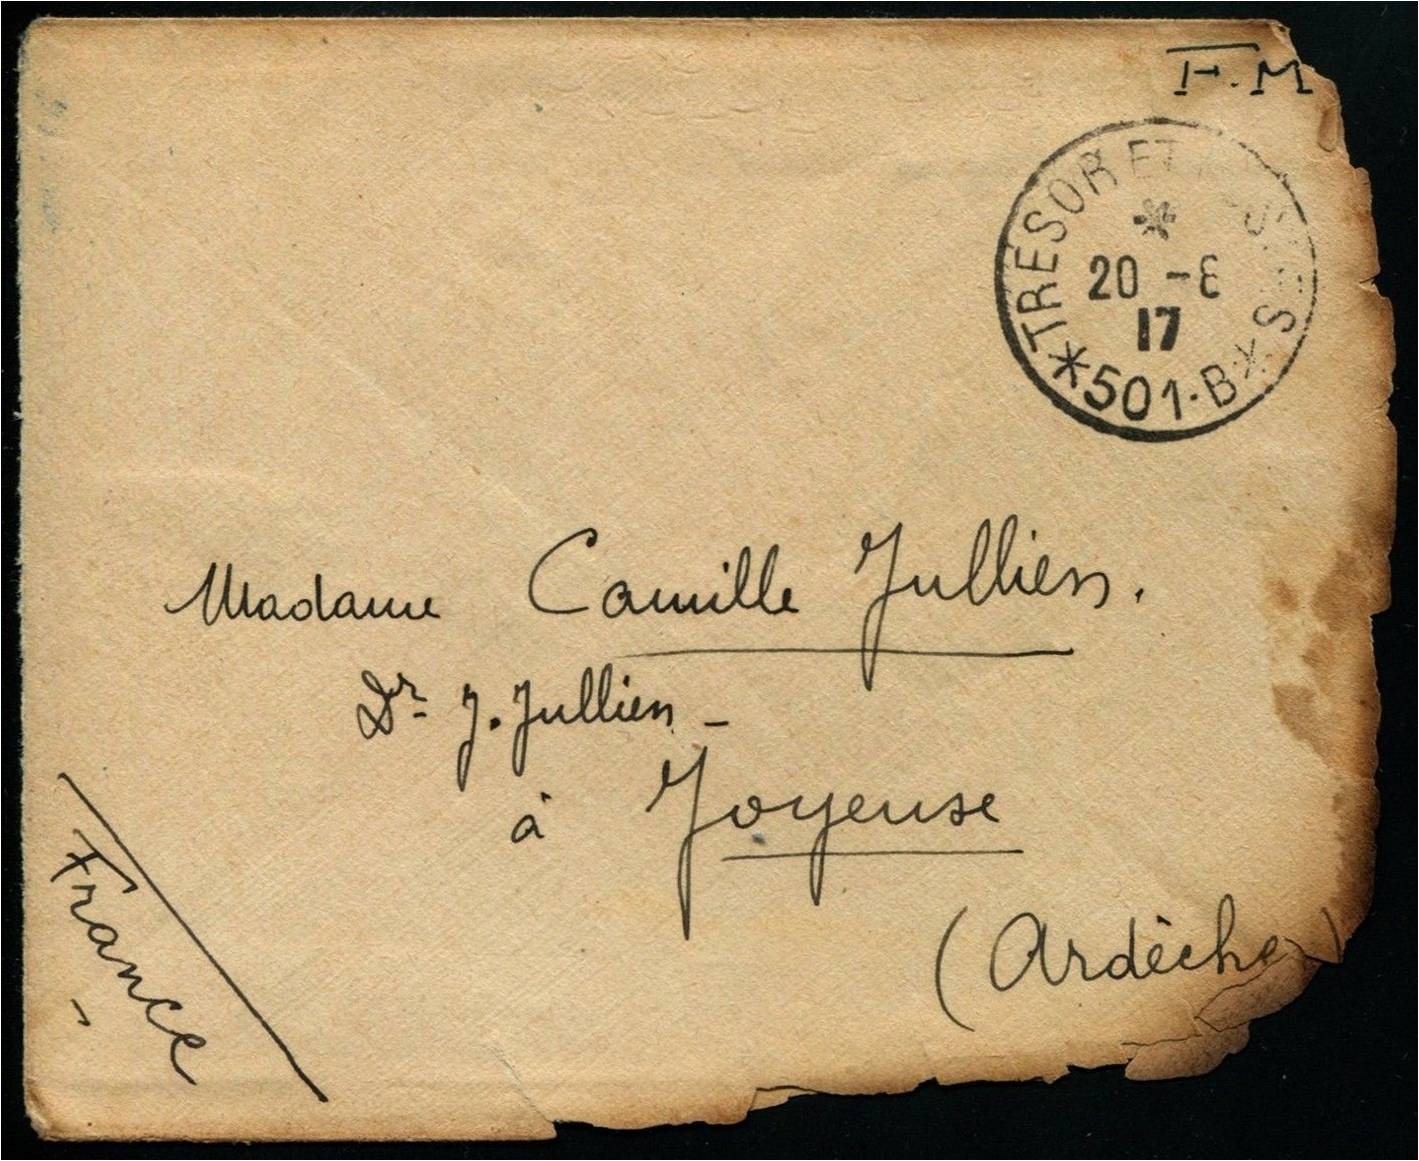 F.M
*TRESOR ET POSTES*
*
20 -8
17
501·B
Madame Camille Jullien.
Dr J. Jullien -
à Joyeuse
(Ardèche)
France